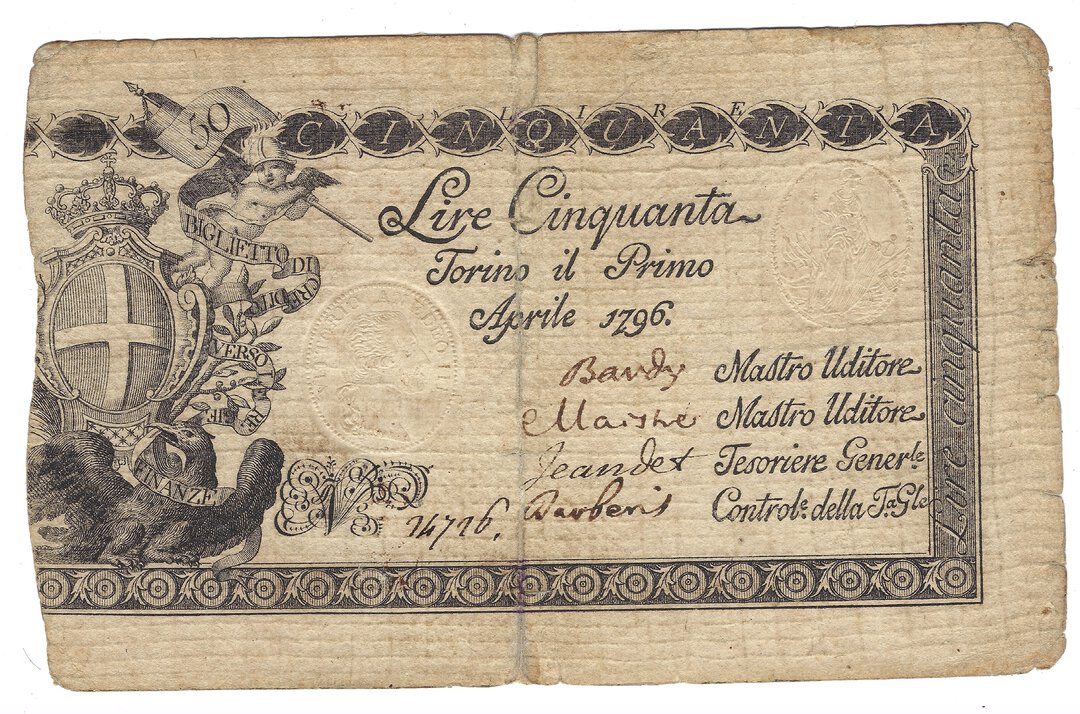 LIRE
CINQUANTA
50
BIGLIETTO DI CREDITO
VERSO
RE
FINANZE
Lire Cinquanta
Torino il Primo
Aprile 1796.
Mastro Uditore
Mastro Uditore
Jeandet Tesoriere Gener.le
Barberis Control.e della T.a G.le
N
14716.
Lire cinquanta